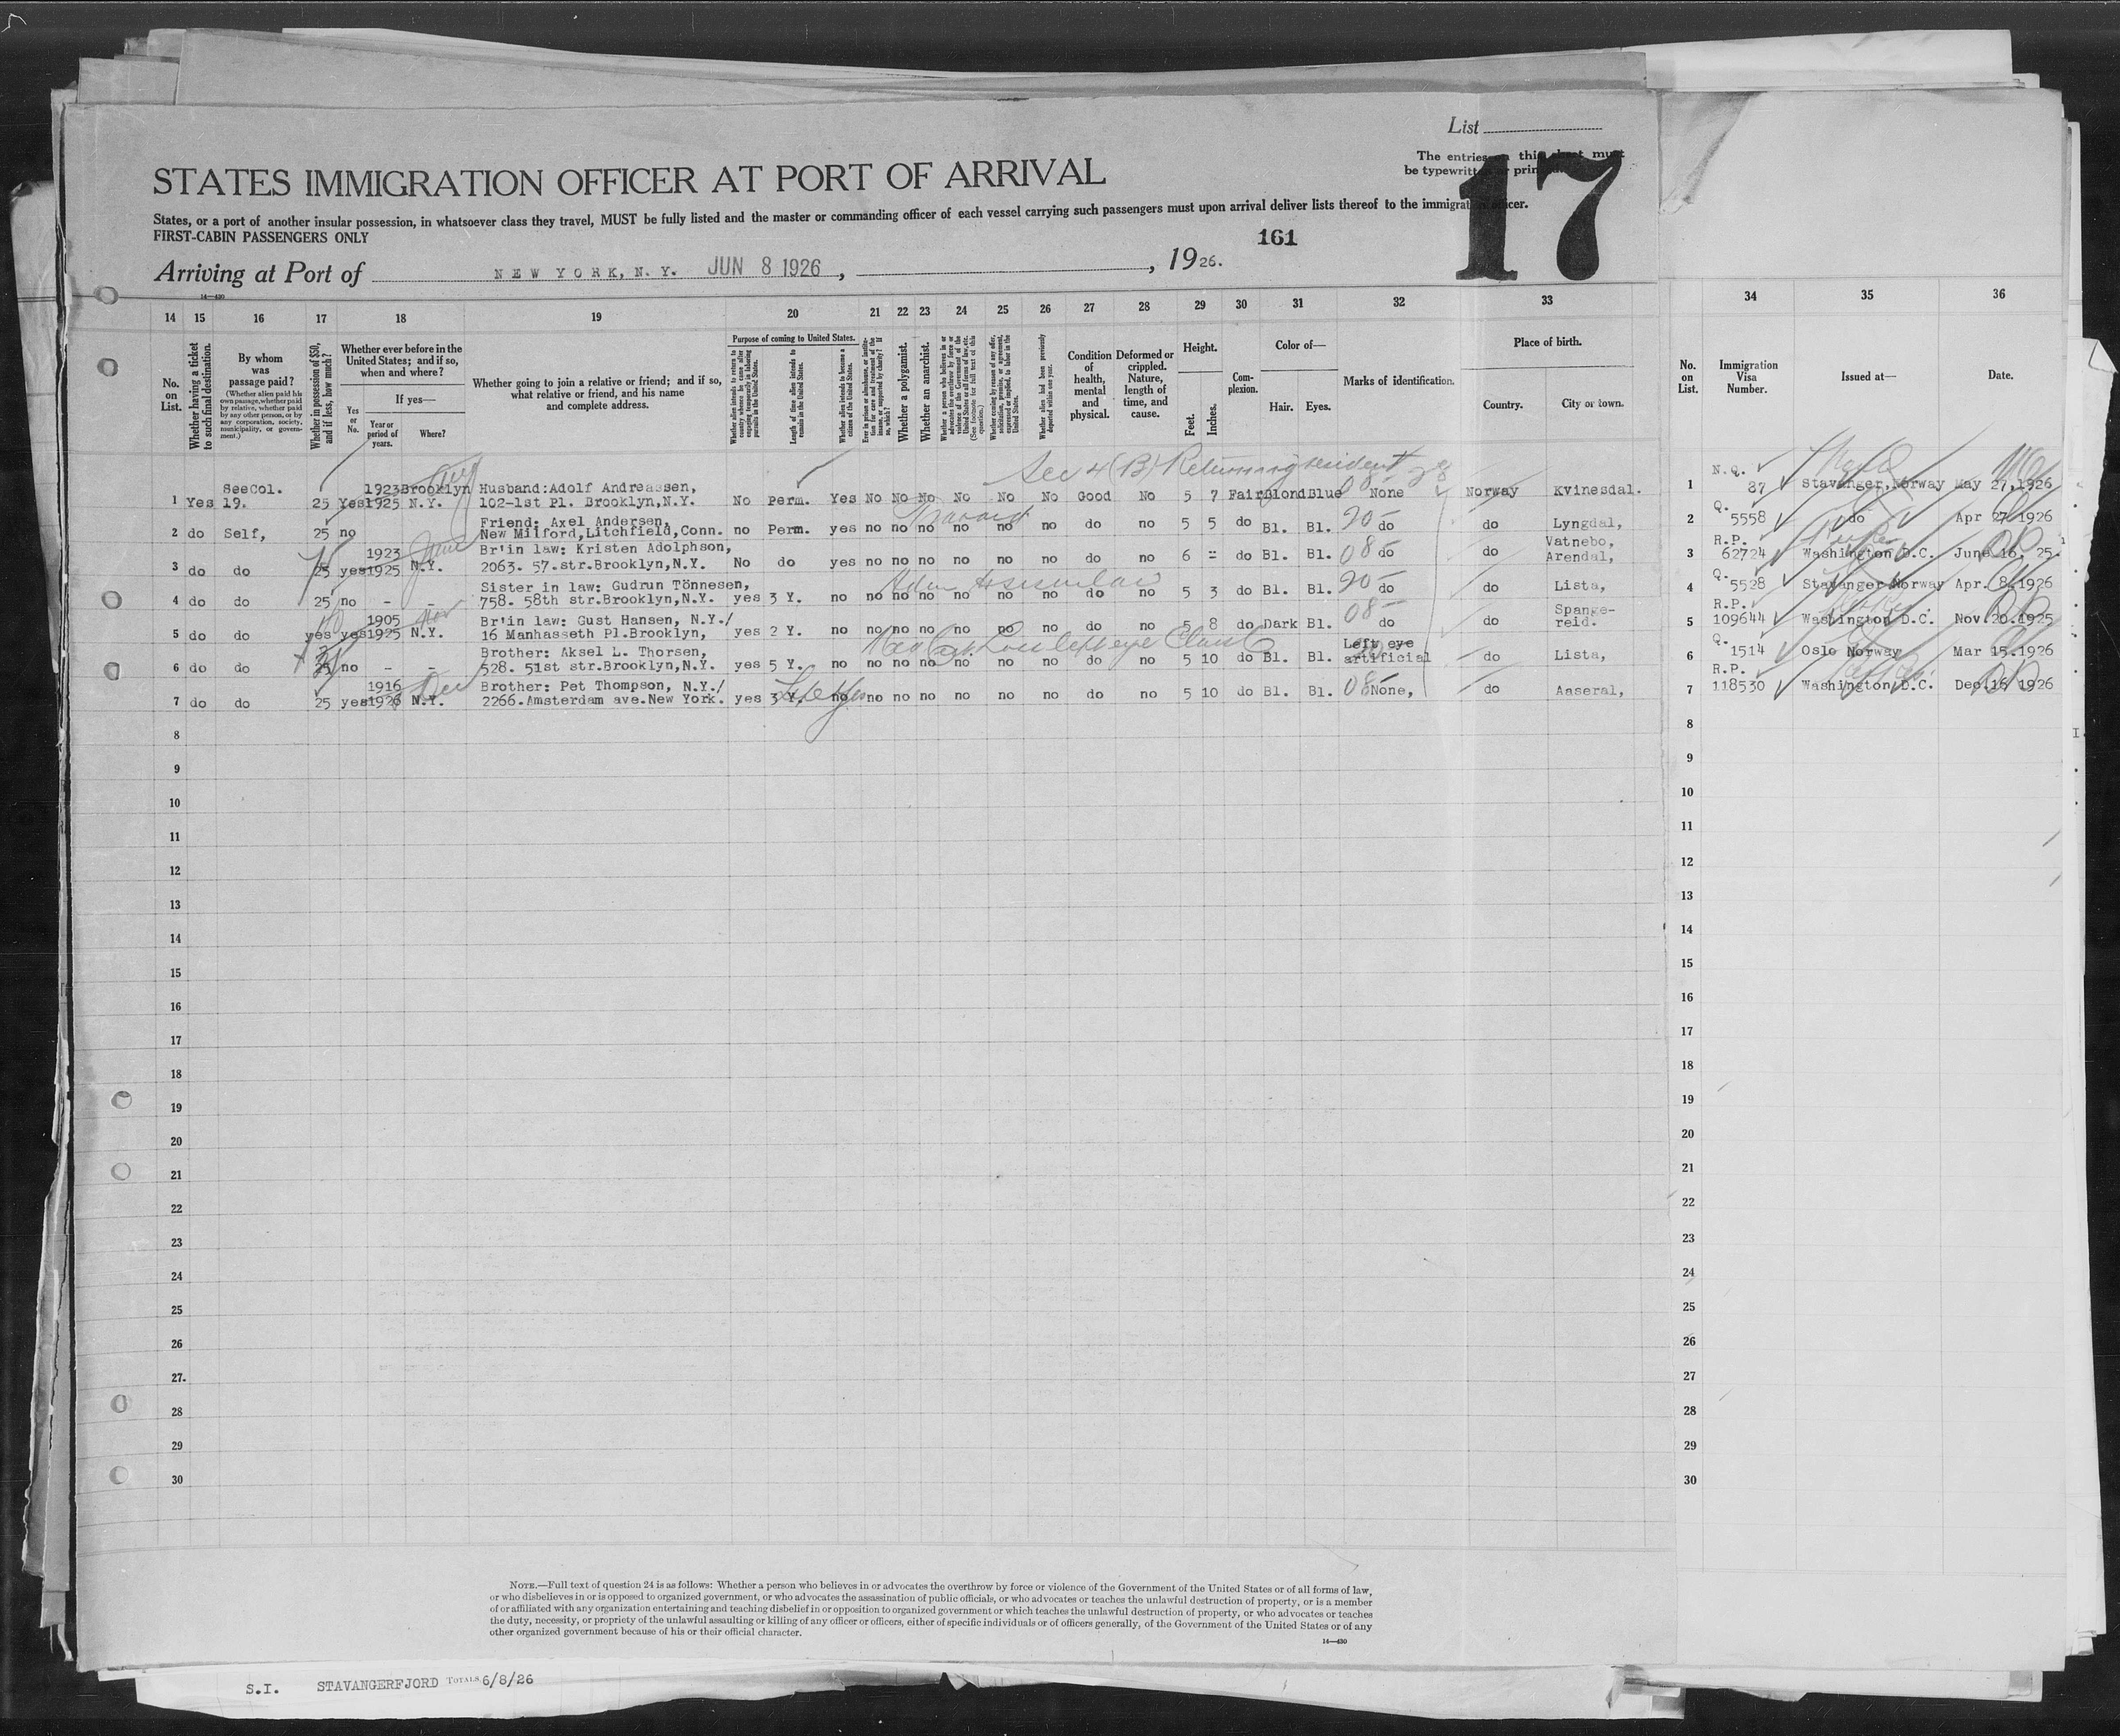 List
The entries on this sheet must
be typewritten or printed.
17
STATES IMMIGRATION OFFICER AT PORT OF ARRIVAL
States, or a port of another insular possession, in whatsoever class they travel, MUST be fully listed and the master or commanding officer of each vessel carrying such passengers must upon arrival deliver lists thereof to the immigration officer.
FIRST-CABIN PASSENGERS ONLY
161
Arriving at Port of NEW YORK, N. Y. JUN 8 1926, , 1926.
14—430
14 15 16 17 18 19 20 21 22 23 24 25 26 27 28 29 30 31 32 33 34 35 36
No. on List.
Whether having a ticket to such final destination.
By whom was passage paid?
(Whether alien paid his own passage, whether paid by relative, whether paid by any other person, or by any corporation, society, municipality, or government.)
Whether in possession of $50, and if less, how much?
Whether ever before in the United States; and if so, when and where?
Yes or No.
If yes—
Year or period of years.
Where?
Whether going to join a relative or friend; and if so, what relative or friend, and his name and complete address.
Purpose of coming to United States.
Whether alien intends to return to country whence he came after engaging temporarily in laboring pursuits in the United States.
Length of time alien intends to remain in the United States.
Whether alien intends to become a citizen of the United States.
Whether a polygamist.
Whether an anarchist.
Whether alien had been previously deported within one year.
Condition of health, mental and physical.
Deformed or crippled. Nature, length of time, and cause.
Height.
Feet.
Inches.
Complexion.
Color of—
Hair.
Eyes.
Marks of identification.
Place of birth.
Country.
City or town.
No. on List.
Immigration Visa Number.
Issued at—
Date.
Sec 4 (B) Returning resident
1 Yes SeeCol. 19. 25 Yes 1923 1925 Brooklyn N.Y. Husband:Adolf Andreassen, 102-1st Pl. Brooklyn,N.Y. No Perm. Yes No No No No No No Good No 5 7 Fair Blond Blue None Norway Kvinesdal. 1 N.Q. 87 Stavanger,Norway May 27,1926
2 do Self, 25 no Friend: Axel Andersen, New Milford,Litchfield,Conn. no Perm. yes no no no no no no do no 5 5 do Bl. Bl. 20 do do Lyngdal, 2 Q. 5558 do Apr 27 1926
3 do do 25 yes 1923 1925 N.Y. Br'in law: Kristen Adolphson, 2063. 57.str.Brooklyn,N.Y. No do yes no no no no no no do no 6 - do Bl. Bl. 08 do do Vatnebo, Arendal, 3 R.P. 62724 Washington D.C. June 16, 25.
4 do do 25 no - - Sister in law: Gudrun Tönnesen, 758. 58th str.Brooklyn,N.Y. yes 3 Y. no no no no no no no do no 5 3 do Bl. Bl. 20 do do Lista, 4 Q. 5528 Stavanger Norway Apr. 8,1926
5 do do yes yes 1905 1925 N.Y. Br'in law: Gust Hansen, N.Y./ 16 Manhasseth Pl.Brooklyn, yes 2 Y. no no no no no no no do no 5 8 do Dark Bl. 08 do do Spange- reid. 5 R.P. 109644 Washington D.C. Nov.20.1925
6 do do 25 no - - Brother: Aksel L. Thorsen, 528. 51st str.Brooklyn,N.Y. yes 5 Y. no no no no no no no do no 5 10 do Bl. Bl. Left eye artificial do Lista, 6 Q. 1514 Oslo Norway Mar 15.1926
7 do do 25 yes 1916 1926 N.Y. Brother: Pet Thompson, N.Y./ 2266.Amsterdam ave.New York. yes 3 Y. no no no no no no no do no 5 10 do Bl. Bl. 08 None, do Aaseral, 7 R.P. 118530 Washington,D.C. Dec.16 1926
8 8
9 9
10 10
11 11
12 12
13 13
14 14
15 15
16 16
17 17
18 18
19 19
20 20
21 21
22 22
23 23
24 24
25 25
26 26
27. 27
28 28
29 29
30 30
NOTE.—Full text of question 24 is as follows: Whether a person who believes in or advocates the overthrow by force or violence of the Government of the United States or of all forms of law,
or who disbelieves in or is opposed to organized government, or who advocates the assassination of public officials, or who advocates or teaches the unlawful destruction of property, or is a member
of or affiliated with any organization entertaining and teaching disbelief in or opposition to organized government or which teaches the unlawful destruction of property, or who advocates or teaches
the duty, necessity, or propriety of the unlawful assaulting or killing of any officer or officers, either of specific individuals or of officers generally, of the Government of the United States or of any
other organized government because of his or their official character.
14—430
S.I. STAVANGERFJORD TOTALS 6/8/26